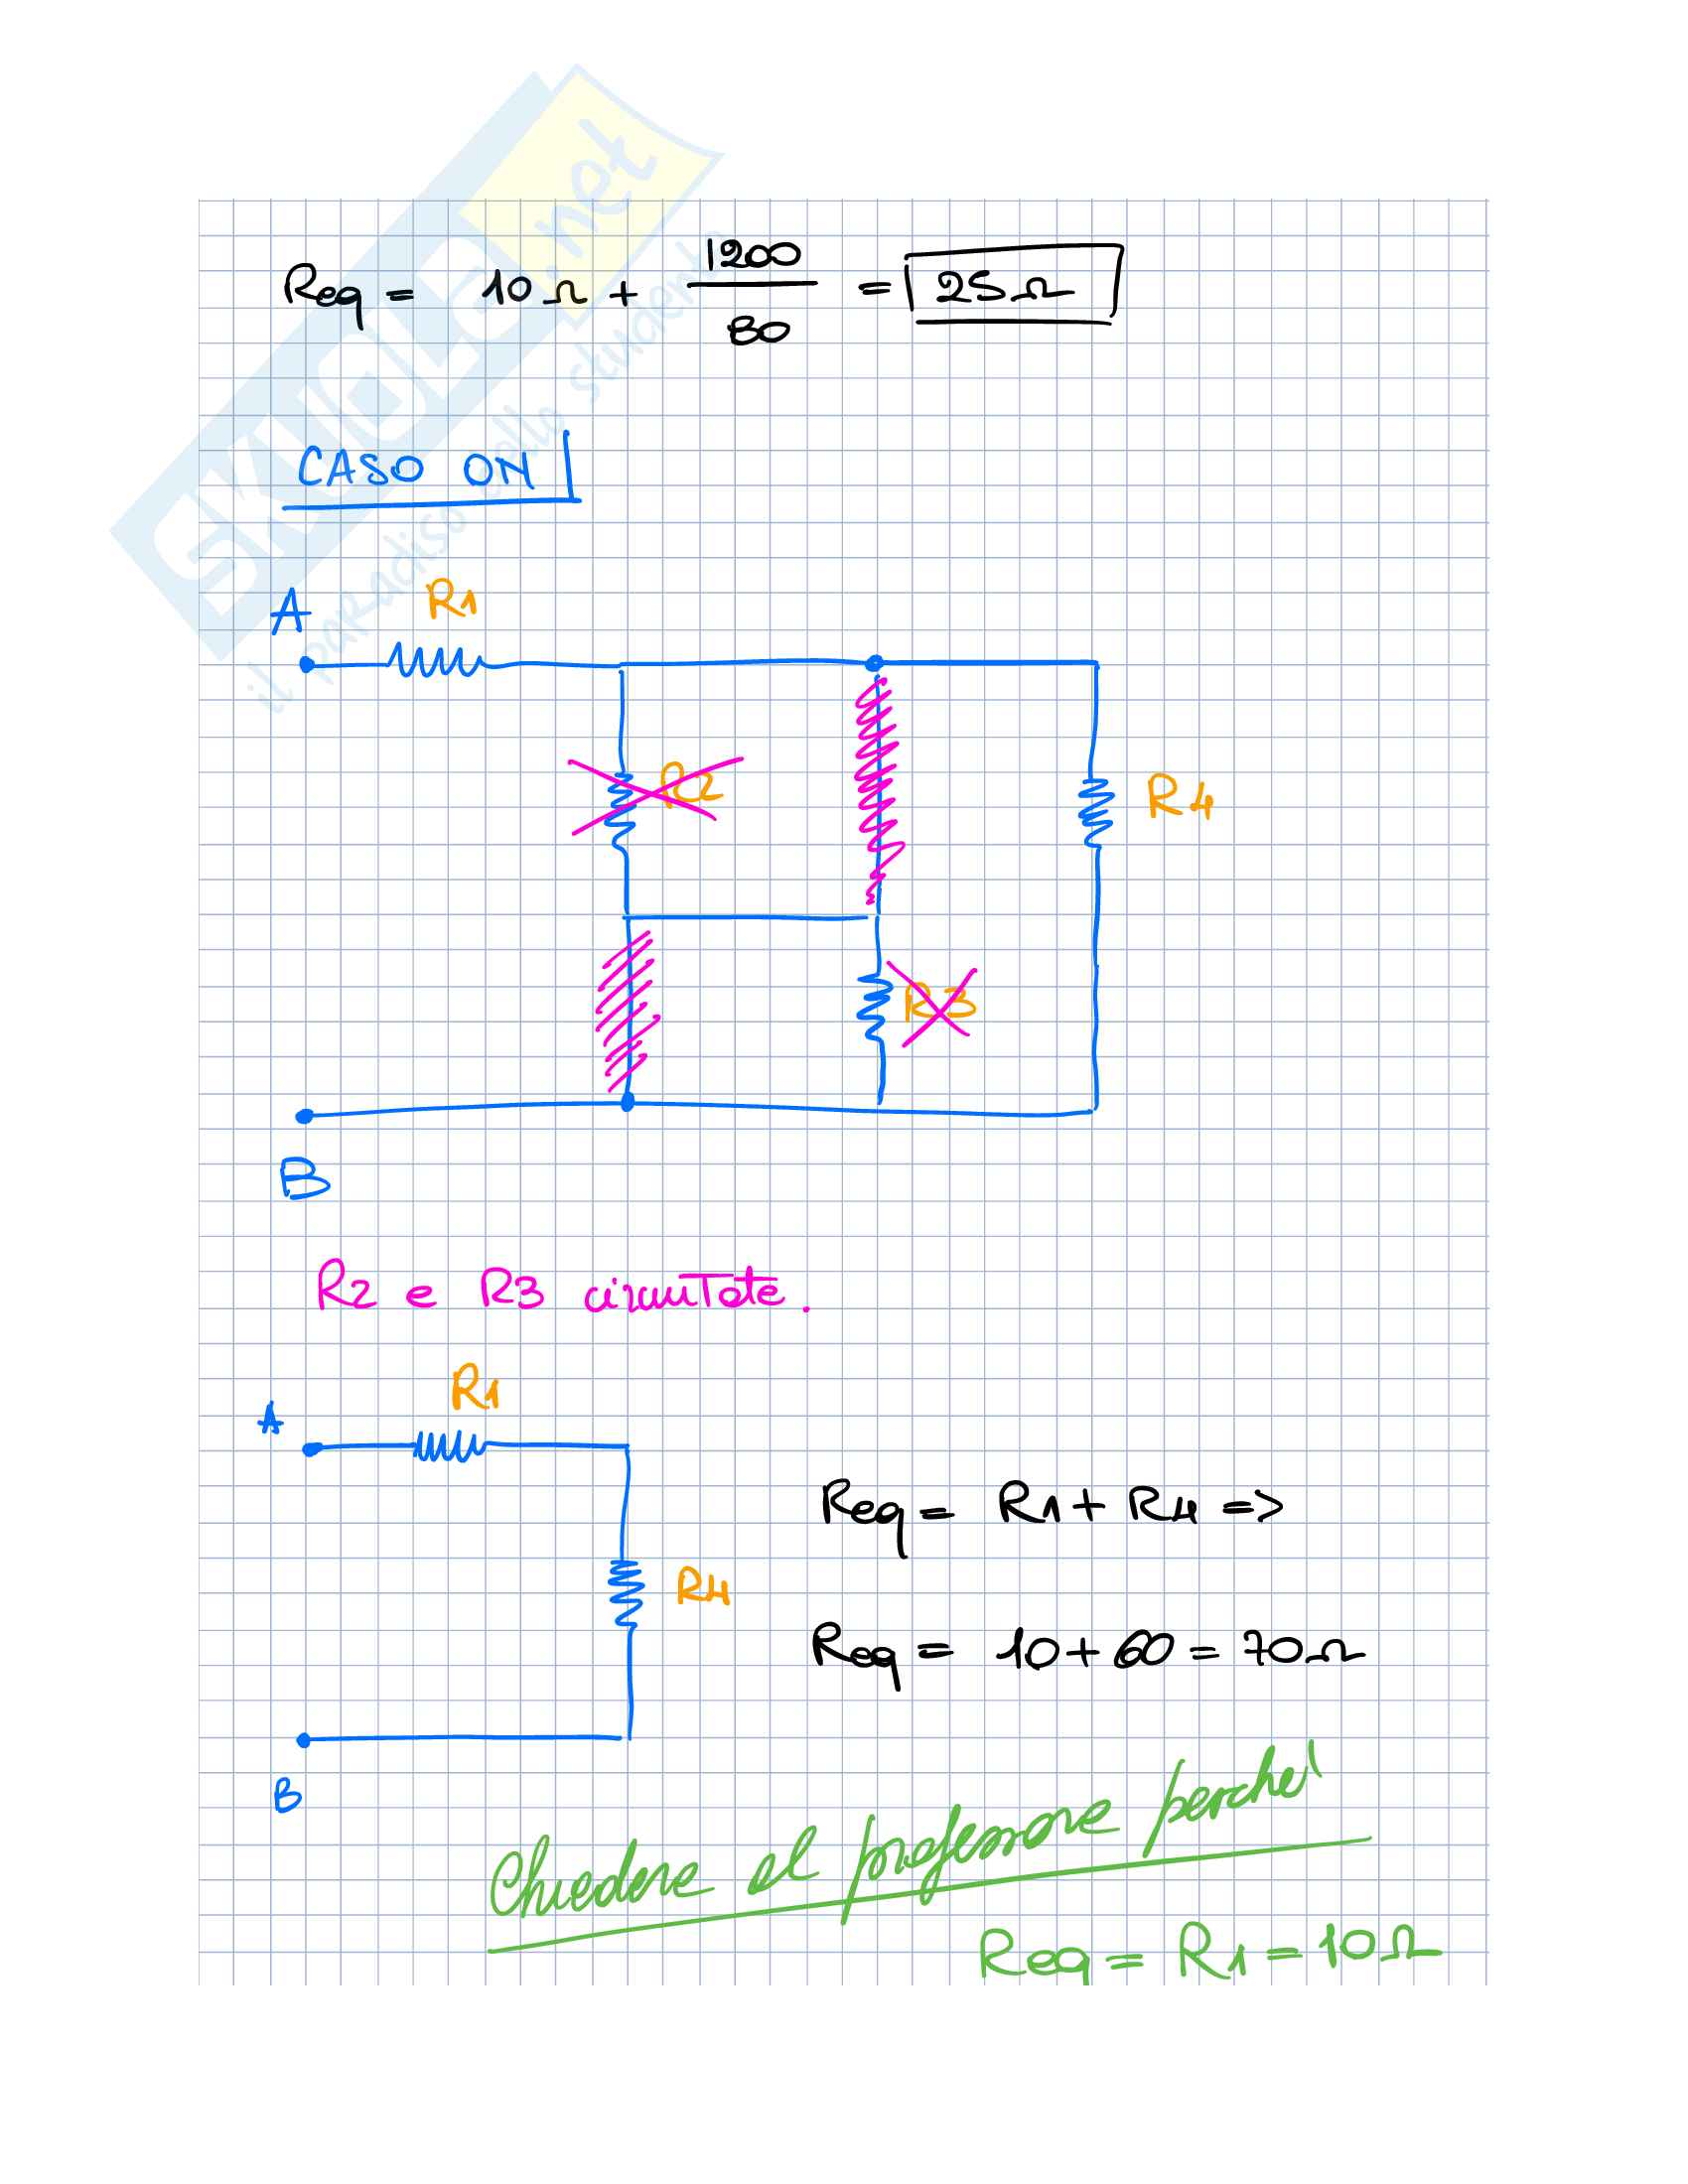 Req = 10Ω + 1200/80 = 25Ω
CASO ON
A
R1
R2
R4
R3
B
R2 e R3 circuitate.
R1
A
Req = R1 + R4 =>
R4
Req = 10 + 60 = 70Ω
B
Chiedere al professore perche'
Req = R1 = 10Ω
SKUOLA.net
il paradiso dello studente